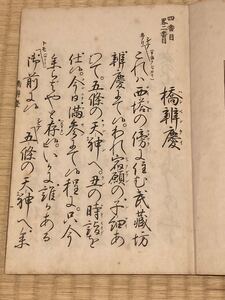 四番目
畧二番目
橋辨慶
これハ西塔の傍に住む武藏坊
辨慶にて候。われ宿願の子細あ
つて。五條の天神へ。丑の時詣を
仕候。今日滿參にて候程に。只今
參らばやと存候。いかに誰かある
御前に候　五條の天神へ參